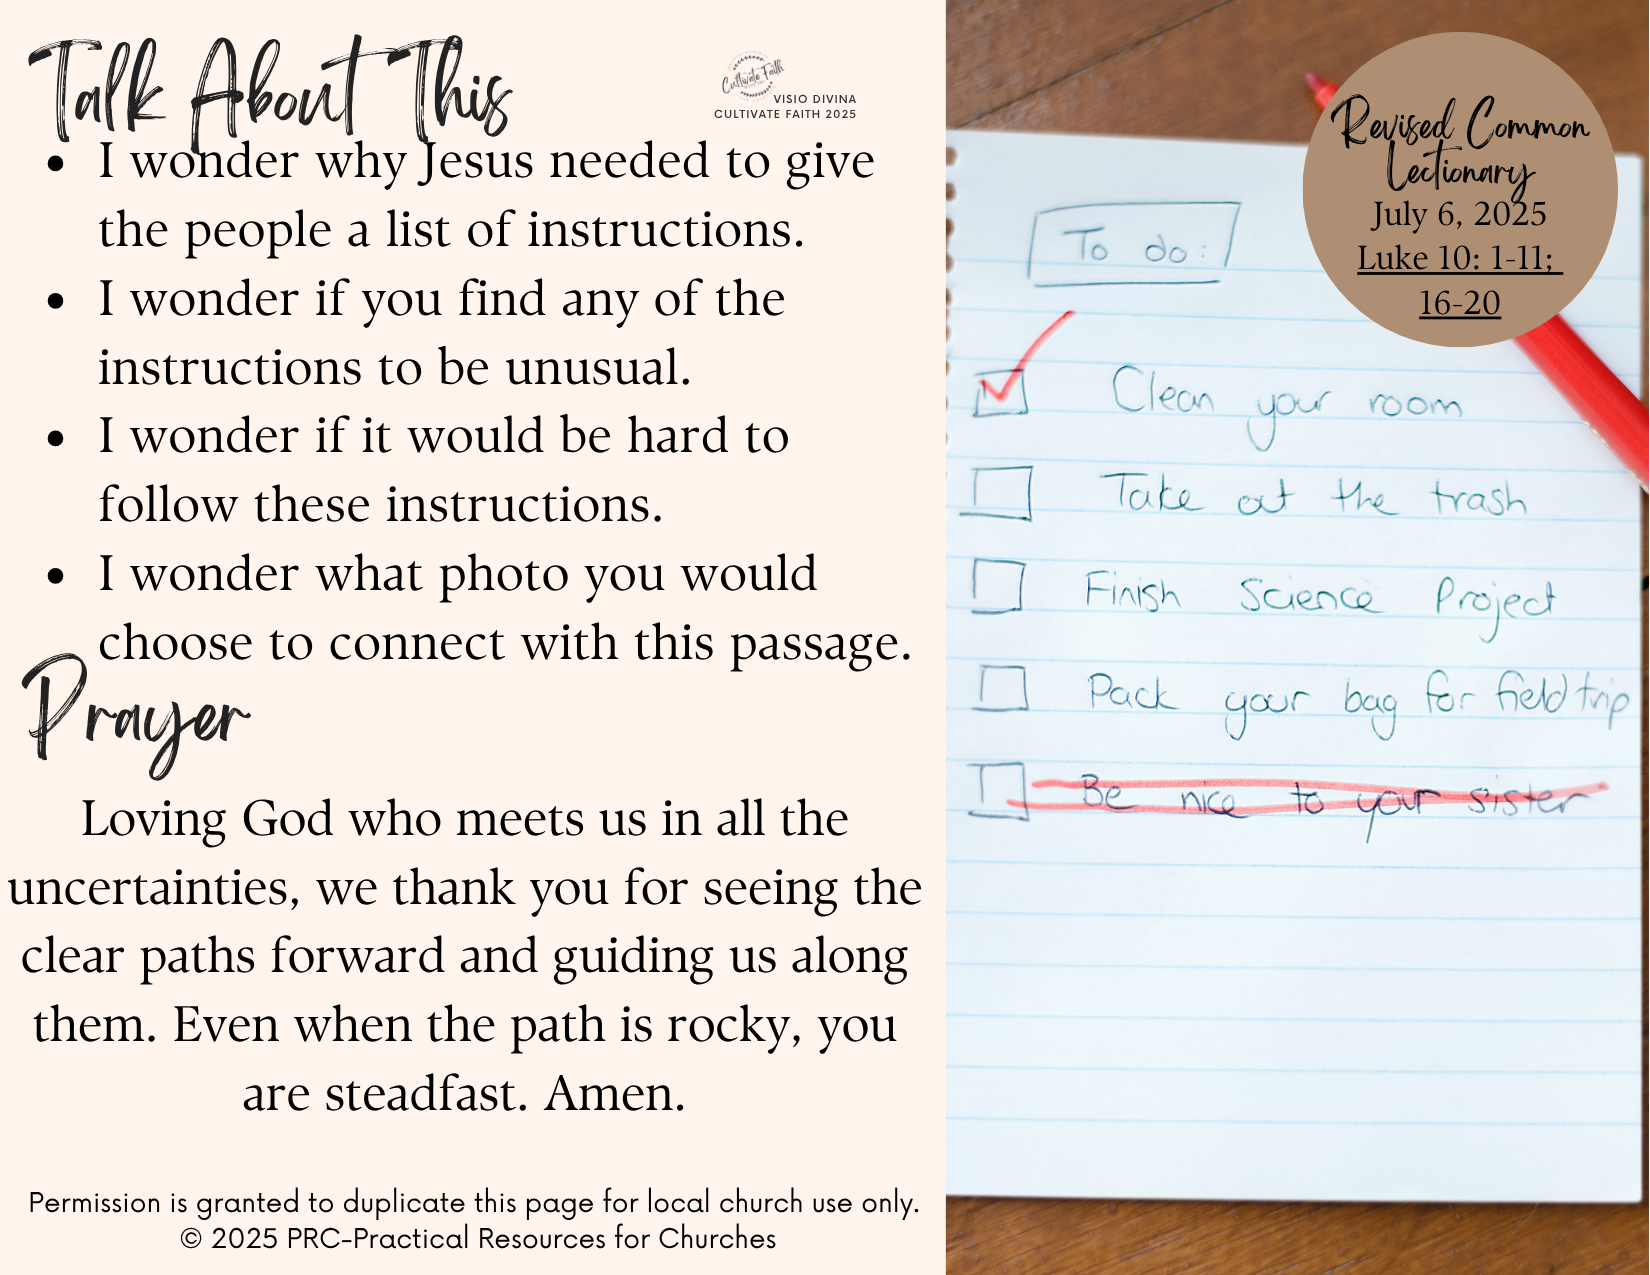 Talk About This
Cultivate Faith
VISIO DIVINA
CULTIVATE FAITH 2025
• I wonder why Jesus needed to give
the people a list of instructions.
• I wonder if you find any of the
instructions to be unusual.
• I wonder if it would be hard to
follow these instructions.
• I wonder what photo you would
choose to connect with this passage.
Prayer
Loving God who meets us in all the
uncertainties, we thank you for seeing the
clear paths forward and guiding us along
them. Even when the path is rocky, you
are steadfast. Amen.
Permission is granted to duplicate this page for local church use only.
© 2025 PRC-Practical Resources for Churches
Revised Common
Lectionary
July 6, 2025
Luke 10: 1-11;
16-20
To do:
Clean your room
Take out the trash
Finish Science Project
Pack your bag for field trip
Be nice to your sister